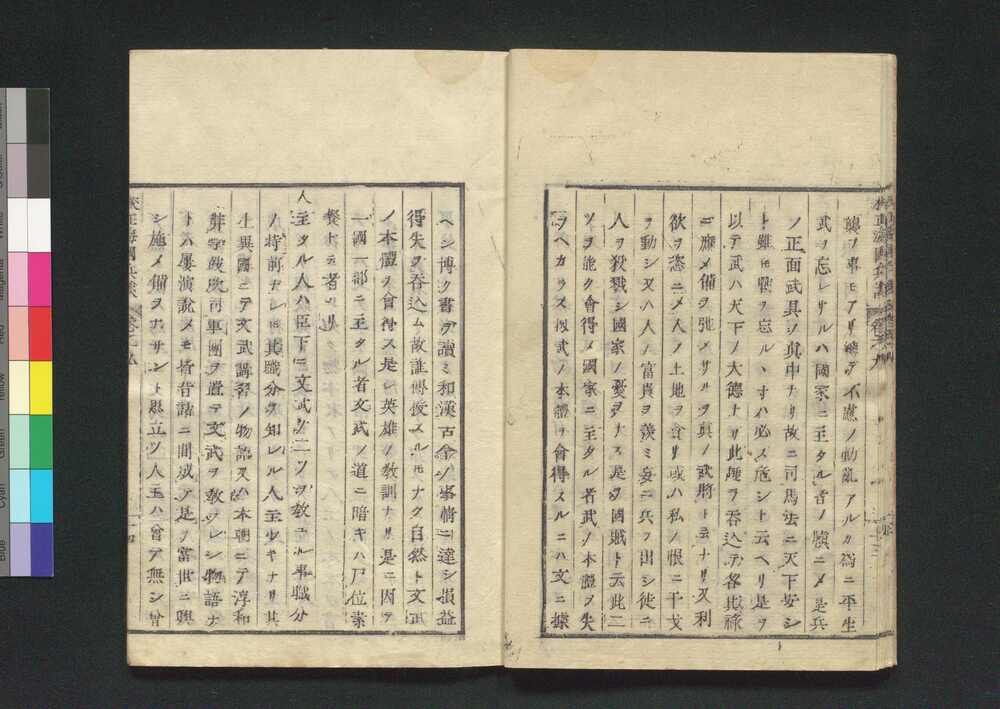 襲フ事モアリ總テ不慮ノ動亂アルカ為ニ平生
武ヲ忘レサルハ國家ニ主タル者ノ職ニメ是兵
ノ正面武具ノ眞中ナリ故ニ司馬法ニ天下安シ
ト雖𪜈戰ヲ忘ルヽ寸ハ必ス危シト云ヘリ是ヲ
以テ武ハ天下ノ大德ナリ此理ヲ呑込テ各其祿
ニ應メ備ヲ弛メサルヲ眞ノ武將ト云ナリ又利
欲ヲ恣ニメ人ノ土地ヲ貪リ或ハ私ノ恨ニ干戈
ヲ動シ又ハ人ノ富貴ヲ羨ミ妄ニ兵ヲ出シ徒ニ
人ヲ殺戮シ國家ノ憂ヲナス是ヲ國賊ト云此二
ツヲ能ク會得メ國家ニ主タル者武ノ本體ヲ失
フヘカラス扨武ノ本體ヲ會得スルニハ文ニ據
ヘシ博ク書ヲ讀ミ和漢古今ノ事情ニ達シ損益
得失ヲ呑込ム故誰傳授スル𪜈ナク自然ト文武
ノ本體ヲ會得ス是レ英雄ノ教訓ナリ是ニ因テ
一國一郡ニ主タル者文武ノ道ニ暗キハ尸位素
餐トテ者リ
人主タル人ハ臣下ニ文武ノ二ツヲ教ユル事職分
ノ持前ナレ𪜈其職分ヲ知レル人主少キナリ其
上異國ニテ文武講習ノ物語又ハ本朝ニテ淳和
弉學鼓吹司軍團ヲ置テ文武ヲ教ヲレシ物語ナ
トハ屢演說メモ皆昔話ニ聞成テ是ヲ當世ニ興
シ施メ備ヲナサントト思立ツ人主ハ曾テ無シ曾